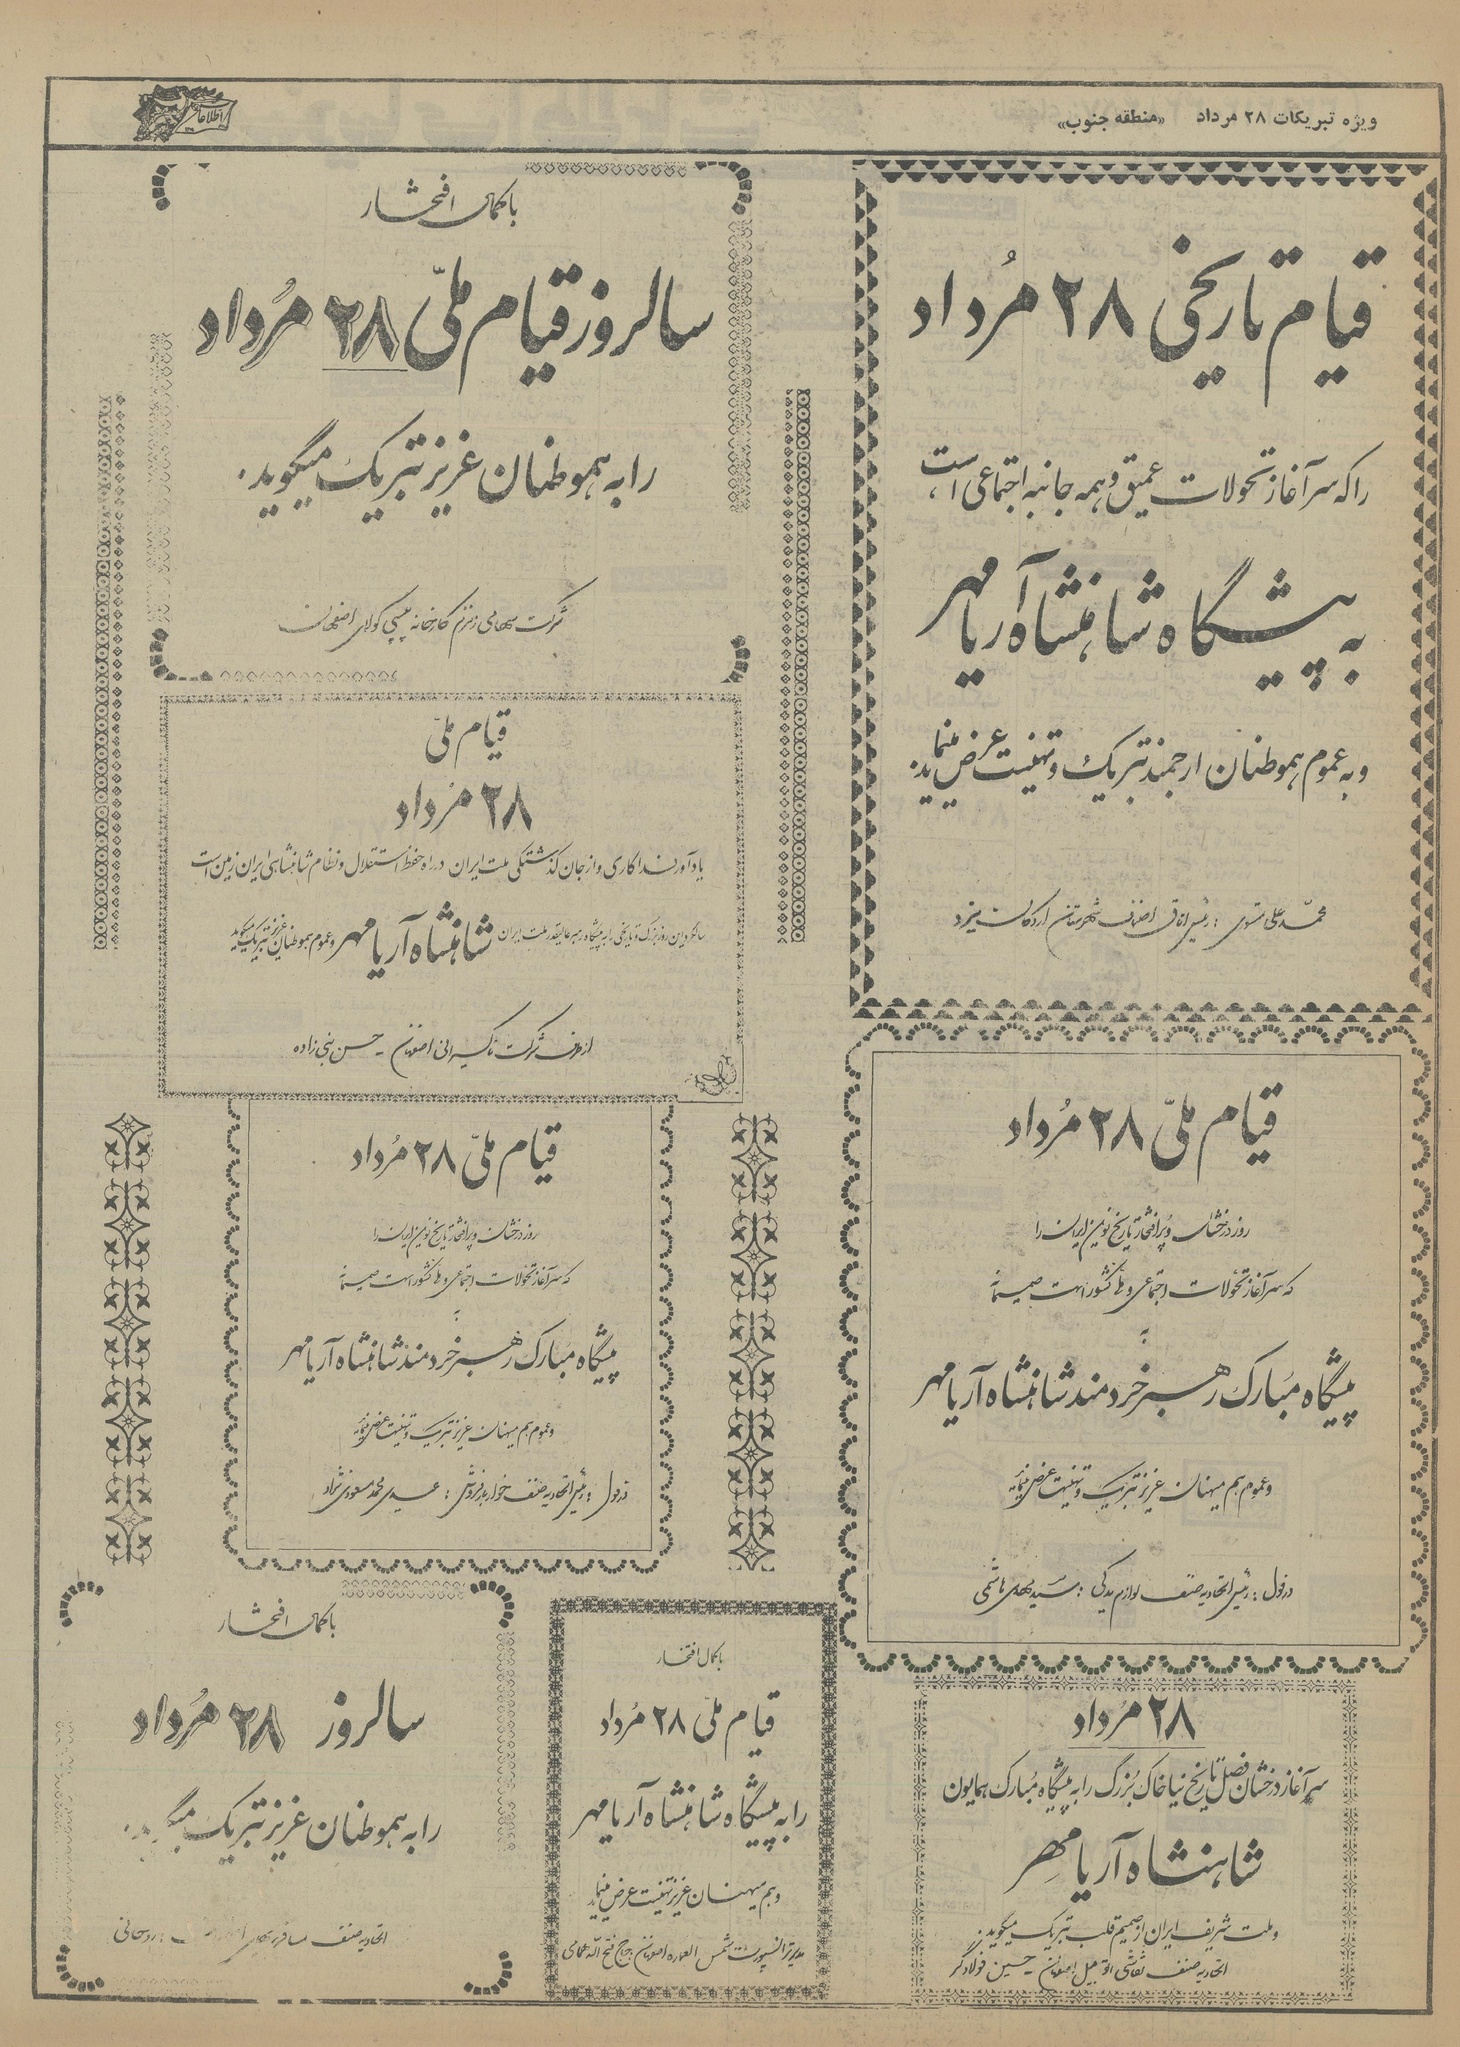 ویژه تبریکات ۲۸ مرداد «منطقه جنوب»
اطلاعات
قیام تاریخی ۲۸ مُرداد
را که سرآغاز تحولات عمیق و همه جانبه اجتماعی است،
به پیشگاه شاهنشاه آریامهر
و به عموم هموطنان ارجمند تبریک و تهنیت عرض مینماید.
محمّد علی : رئیس اتاق اصناف شهرستان اردکان یزد
با کمال افتخار
سالروز قیام ملّی ۲۸ مُرداد
را به هموطنان عزیز تبریک میگوید.
شرکت سهامی زمزم کارخانه پپسی کولای اصفهان
قیام ملّی
۲۸ مُرداد
یادآور فداکاری و از جان گذشتگی ملت ایران در راه حفظ استقلال و نظام شاهنشاهی ایران زمین است
سالگرد این روز بزرگ و تاریخی را به پیشگاه رهبر عالیقدر ملت ایران شاهنشاه آریامهر و عموم هموطنان عزیز تبریک میگوید
از طرف شرکت تاکسیرانی اصفهان - حسن نبی زاده
قیام ملّی ۲۸ مُرداد
روز درخشان و پرافتخار تاریخ نوین ایران را
که سرآغاز تحولات اجتماعی و ملی کشور است صمیمانه
به
پیشگاه مبارک رهبر خردمند شاهنشاه آریامهر
و عموم هم میهنان عزیز تبریک و تهنیت عرض مینماید
دزفول : رئیس اتحادیه صنف لوازم یدکی : سید مهدی هاشمی
قیام ملّی ۲۸ مُرداد
روز درخشان و پرافتخار تاریخ نوین ایران را
که سرآغاز تحولات اجتماعی و ملی کشور است صمیمانه
به
پیشگاه مبارک رهبر خردمند شاهنشاه آریامهر
و عموم هم میهنان عزیز تبریک و تهنیت عرض مینماید
دزفول : رئیس اتحادیه صنف خواربار فروش : محمد مسعودی نژاد
۲۸ مُرداد
سرآغاز درخشان فصل تاریخ نیاخاک بزرگ را به پیشگاه مبارک همایون
شاهنشاه آریامهر
و ملت شریف ایران از صمیم قلب تبریک میگوید.
اتحادیه صنف نقاشی اتومبیل اصفهان - حسین فولادگر
با کمال افتخار
قیام ملّی ۲۸ مُرداد
را به پیشگاه شاهنشاه آریامهر
و هم میهنان عزیز تهنیت عرض مینماید
مدیر ترانسپورت شمس العماره اصفهان : حاج فتح الله
با کمال افتخار
سالروز ۲۸ مُرداد
را به هموطنان عزیز تبریک میگوید.
اتحادیه صنف مسافربریهای : روحانی